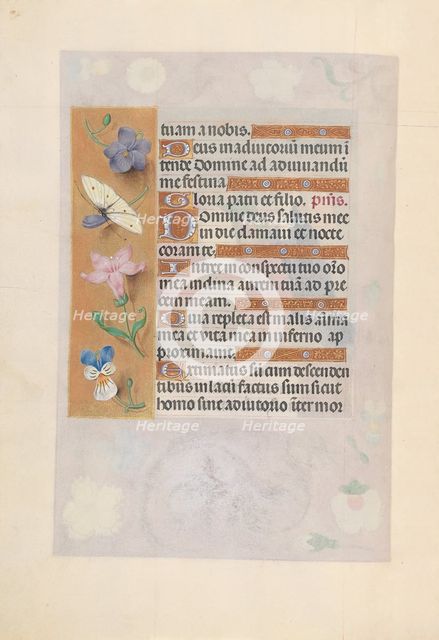 tuam a nobis.
Deus in adiutoriū meum ī
tende Domine ad adiuuandū
me festina
Gloria patri et filio. p̄us.
Domine deus salutis mee
in die clamaui et nocte
coram te.
Intret in conspectu tuo oro
mea inclina aurem tuā ad pre
cem meam.
Quia repleta est malis aīma
mea et vita mea in inferno ap
propinauit.
Estimatus sū cum descenden
tibus in lacū factus sum sicut
homo sine adiutorio īter mor
Heritage
Heritage
Heritage
Heritage
Heritage
Heritage